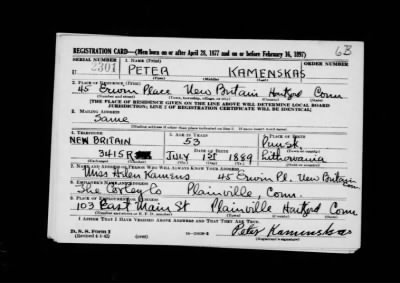 6B
REGISTRATION CARD—(Men born on or after April 28, 1877 and on or before February 16, 1897)
SERIAL NUMBER 1. NAME (Print) ORDER NUMBER
U 2301 PETER KAMENSKAS
(First) (Middle) (Last)
2. PLACE OF RESIDENCE (Print)
45 Erwin Place New Britain Hartford Conn
(Number and street) (Town, township, village, or city) (County) (State)
[THE PLACE OF RESIDENCE GIVEN ON THE LINE ABOVE WILL DETERMINE LOCAL BOARD
JURISDICTION; LINE 2 OF REGISTRATION CERTIFICATE WILL BE IDENTICAL]
3. MAILING ADDRESS
Same
[Mailing address if other than place indicated on line 2. If same insert word same]
4. TELEPHONE 5. AGE IN YEARS 6. PLACE OF BIRTH
NEW BRITAIN 53 Punsk,
DATE OF BIRTH
3415R JULY 1st 1889 Lithuwania
(Exchange) (Number) (Mo.) (Day) (Yr.) (State or country)
7. NAME AND ADDRESS OF PERSON WHO WILL ALWAYS KNOW YOUR ADDRESS
Miss Helen Kamens 45 Erwin Pl. New Britain
8. EMPLOYER'S NAME AND ADDRESS
The Plainville, Conn.
9. PLACE OF EMPLOYMENT OR BUSINESS
103 East Main St Plainville Hartford Conn
(Number and street or R. F. D. number) (Town) (County) (State)
I AFFIRM THAT I HAVE VERIFIED ABOVE ANSWERS AND THAT THEY ARE TRUE.
D. S. S. Form 1
(Revised 4-1-42) Peter Kamenskas
(Registrant's signature)